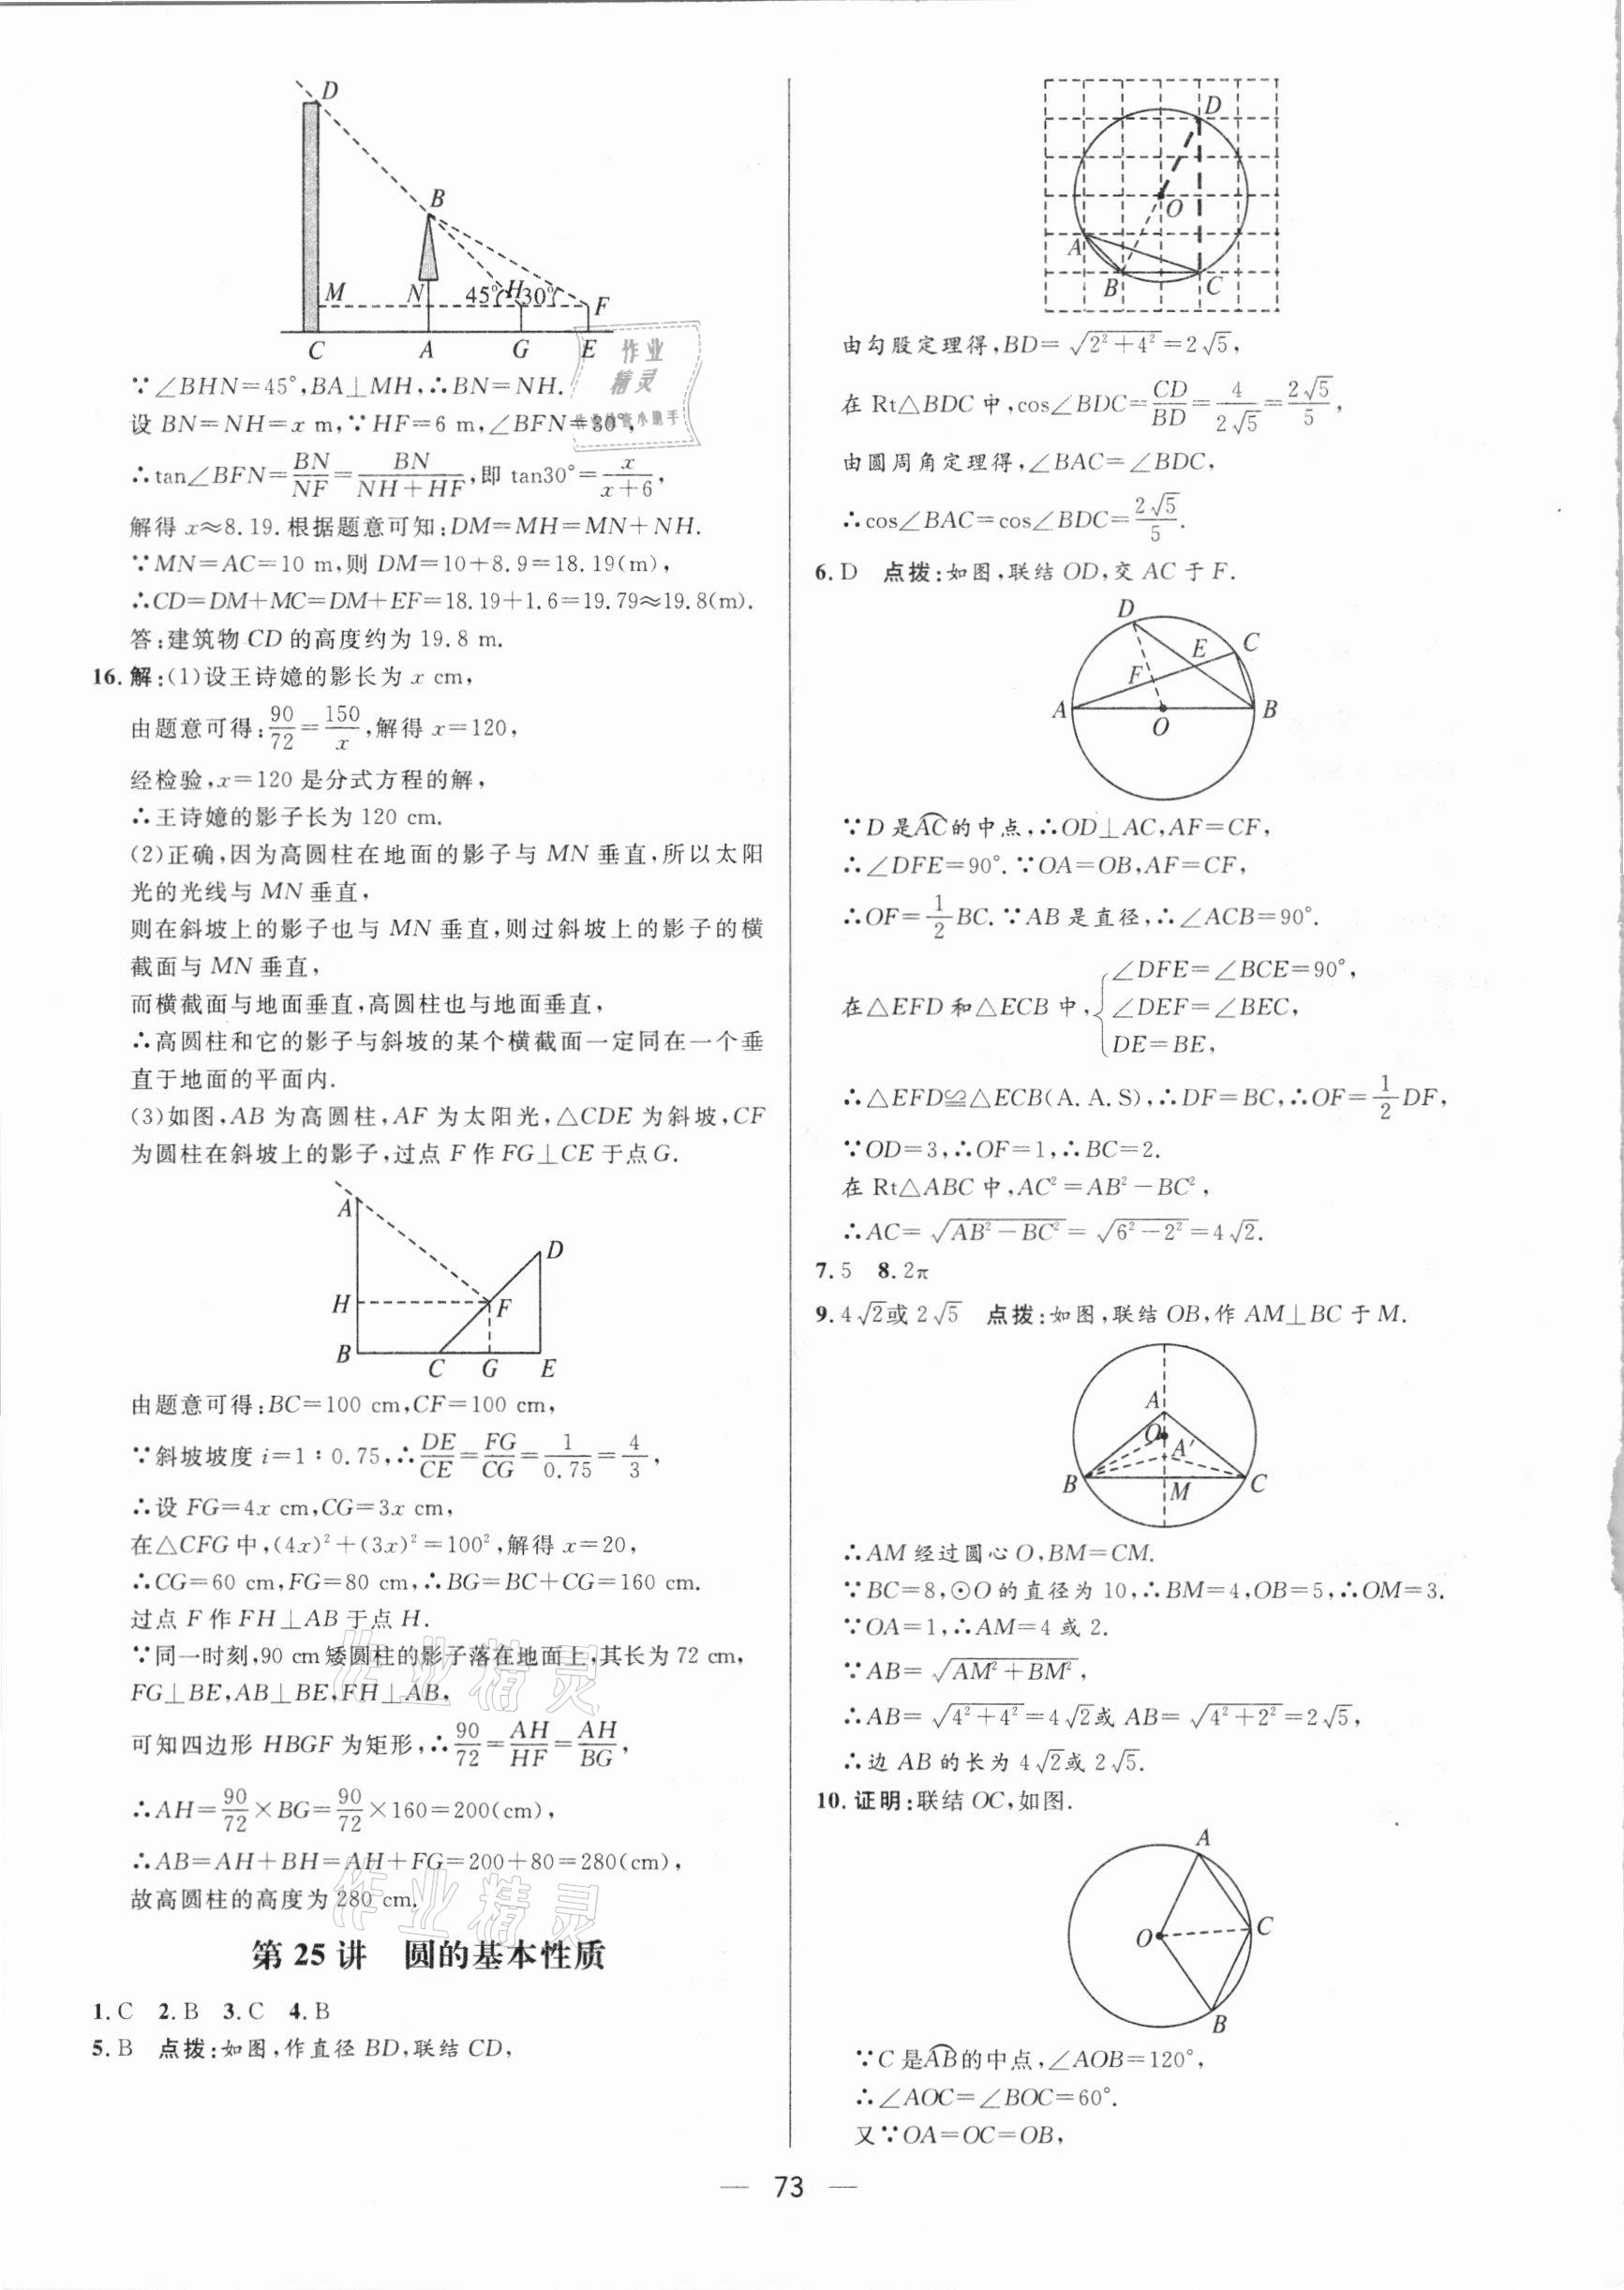 D
B
M
N
45°
H
30°
F
C
A
G
E
∵∠BHN=45°,BA⊥MH,∴BN=NH.
设 BN=NH=x m,∵HF=6 m,∠BFN=30°,
∴tan∠BFN=BN/NF=BN/(NH+HF),即 tan30°=x/(x+6),
解得 x≈8.19.根据题意可知:DM=MH=MN+NH.
∵MN=AC=10 m,则 DM=10+8.9=18.19(m),
∴CD=DM+MC=DM+EF=18.19+1.6=19.79≈19.8(m).
答:建筑物 CD 的高度约为 19.8 m.
16.解:(1)设王诗嬑的影长为 x cm,
由题意可得:90/72=150/x,解得 x=120,
经检验,x=120 是分式方程的解,
∴王诗嬑的影子长为 120 cm.
(2)正确,因为高圆柱在地面的影子与 MN 垂直,所以太阳
光的光线与 MN 垂直,
则在斜坡上的影子也与 MN 垂直,则过斜坡上的影子的横
截面与 MN 垂直,
而横截面与地面垂直,高圆柱也与地面垂直,
∴高圆柱和它的影子与斜坡的某个横截面一定同在一个垂
直于地面的平面内.
(3)如图,AB 为高圆柱,AF 为太阳光,△CDE 为斜坡,CF
为圆柱在斜坡上的影子,过点 F 作 FG⊥CE 于点 G.
A
D
H
F
B
C
G
E
由题意可得:BC=100 cm,CF=100 cm,
∵斜坡坡度 i=1∶0.75,∴DE/CE=FG/CG=1/0.75=4/3,
∴设 FG=4x cm,CG=3x cm,
在△CFG 中,(4x)²+(3x)²=100²,解得 x=20,
∴CG=60 cm,FG=80 cm,∴BG=BC+CG=160 cm.
过点 F 作 FH⊥AB 于点 H.
∵同一时刻,90 cm矮圆柱的影子落在地面上,其长为 72 cm,
FG⊥BE,AB⊥BE,FH⊥AB,
可知四边形 HBGF 为矩形,∴90/72=AH/HF=AH/BG,
∴AH=90/72×BG=90/72×160=200(cm),
∴AB=AH+BH=AH+FG=200+80=280(cm),
故高圆柱的高度为 280 cm.
作业精灵
作业精灵
第 25 讲　圆的基本性质
1.C　2.B　3.C　4.B
5.B　点拨:如图,作直径 BD,联结 CD,
D
O
A
B
C
由勾股定理得,BD=√(2²+4²)=2√5,
在 Rt△BDC 中,cos∠BDC=CD/BD=4/(2√5)=2√5/5,
由圆周角定理得,∠BAC=∠BDC,
∴cos∠BAC=cos∠BDC=2√5/5.
6.D　点拨:如图,联结 OD,交 AC 于 F.
D
E
C
F
A
O
B
∵D 是⌒AC的中点,∴OD⊥AC,AF=CF,
∴∠DFE=90°.∵OA=OB,AF=CF,
∴OF=1/2 BC.∵AB 是直径,∴∠ACB=90°.
∠DFE=∠BCE=90°,
在△EFD 和△ECB 中,{∠DEF=∠BEC,
DE=BE,
∴△EFD≌△ECB(A.A.S),∴DF=BC,∴OF=1/2 DF,
∵OD=3,∴OF=1,∴BC=2.
在 Rt△ABC 中,AC²=AB²-BC²,
∴AC=√(AB²-BC²)=√(6²-2²)=4√2.
7.5　8.2π
9.4√2或 2√5　点拨:如图,联结 OB,作 AM⊥BC 于 M.
A
O
A′
B
M
C
∴AM 经过圆心 O,BM=CM.
∵BC=8,⊙O 的直径为 10,∴BM=4,OB=5,∴OM=3.
∵OA=1,∴AM=4 或 2.
∵AB=√(AM²+BM²),
∴AB=√(4²+4²)=4√2或 AB=√(4²+2²)=2√5,
∴边 AB 的长为 4√2或 2√5.
10.证明:联结 OC,如图.
A
O
C
B
∵C 是⌒AB的中点,∠AOB=120°,
∴∠AOC=∠BOC=60°.
又∵OA=OC=OB,
— 73 —